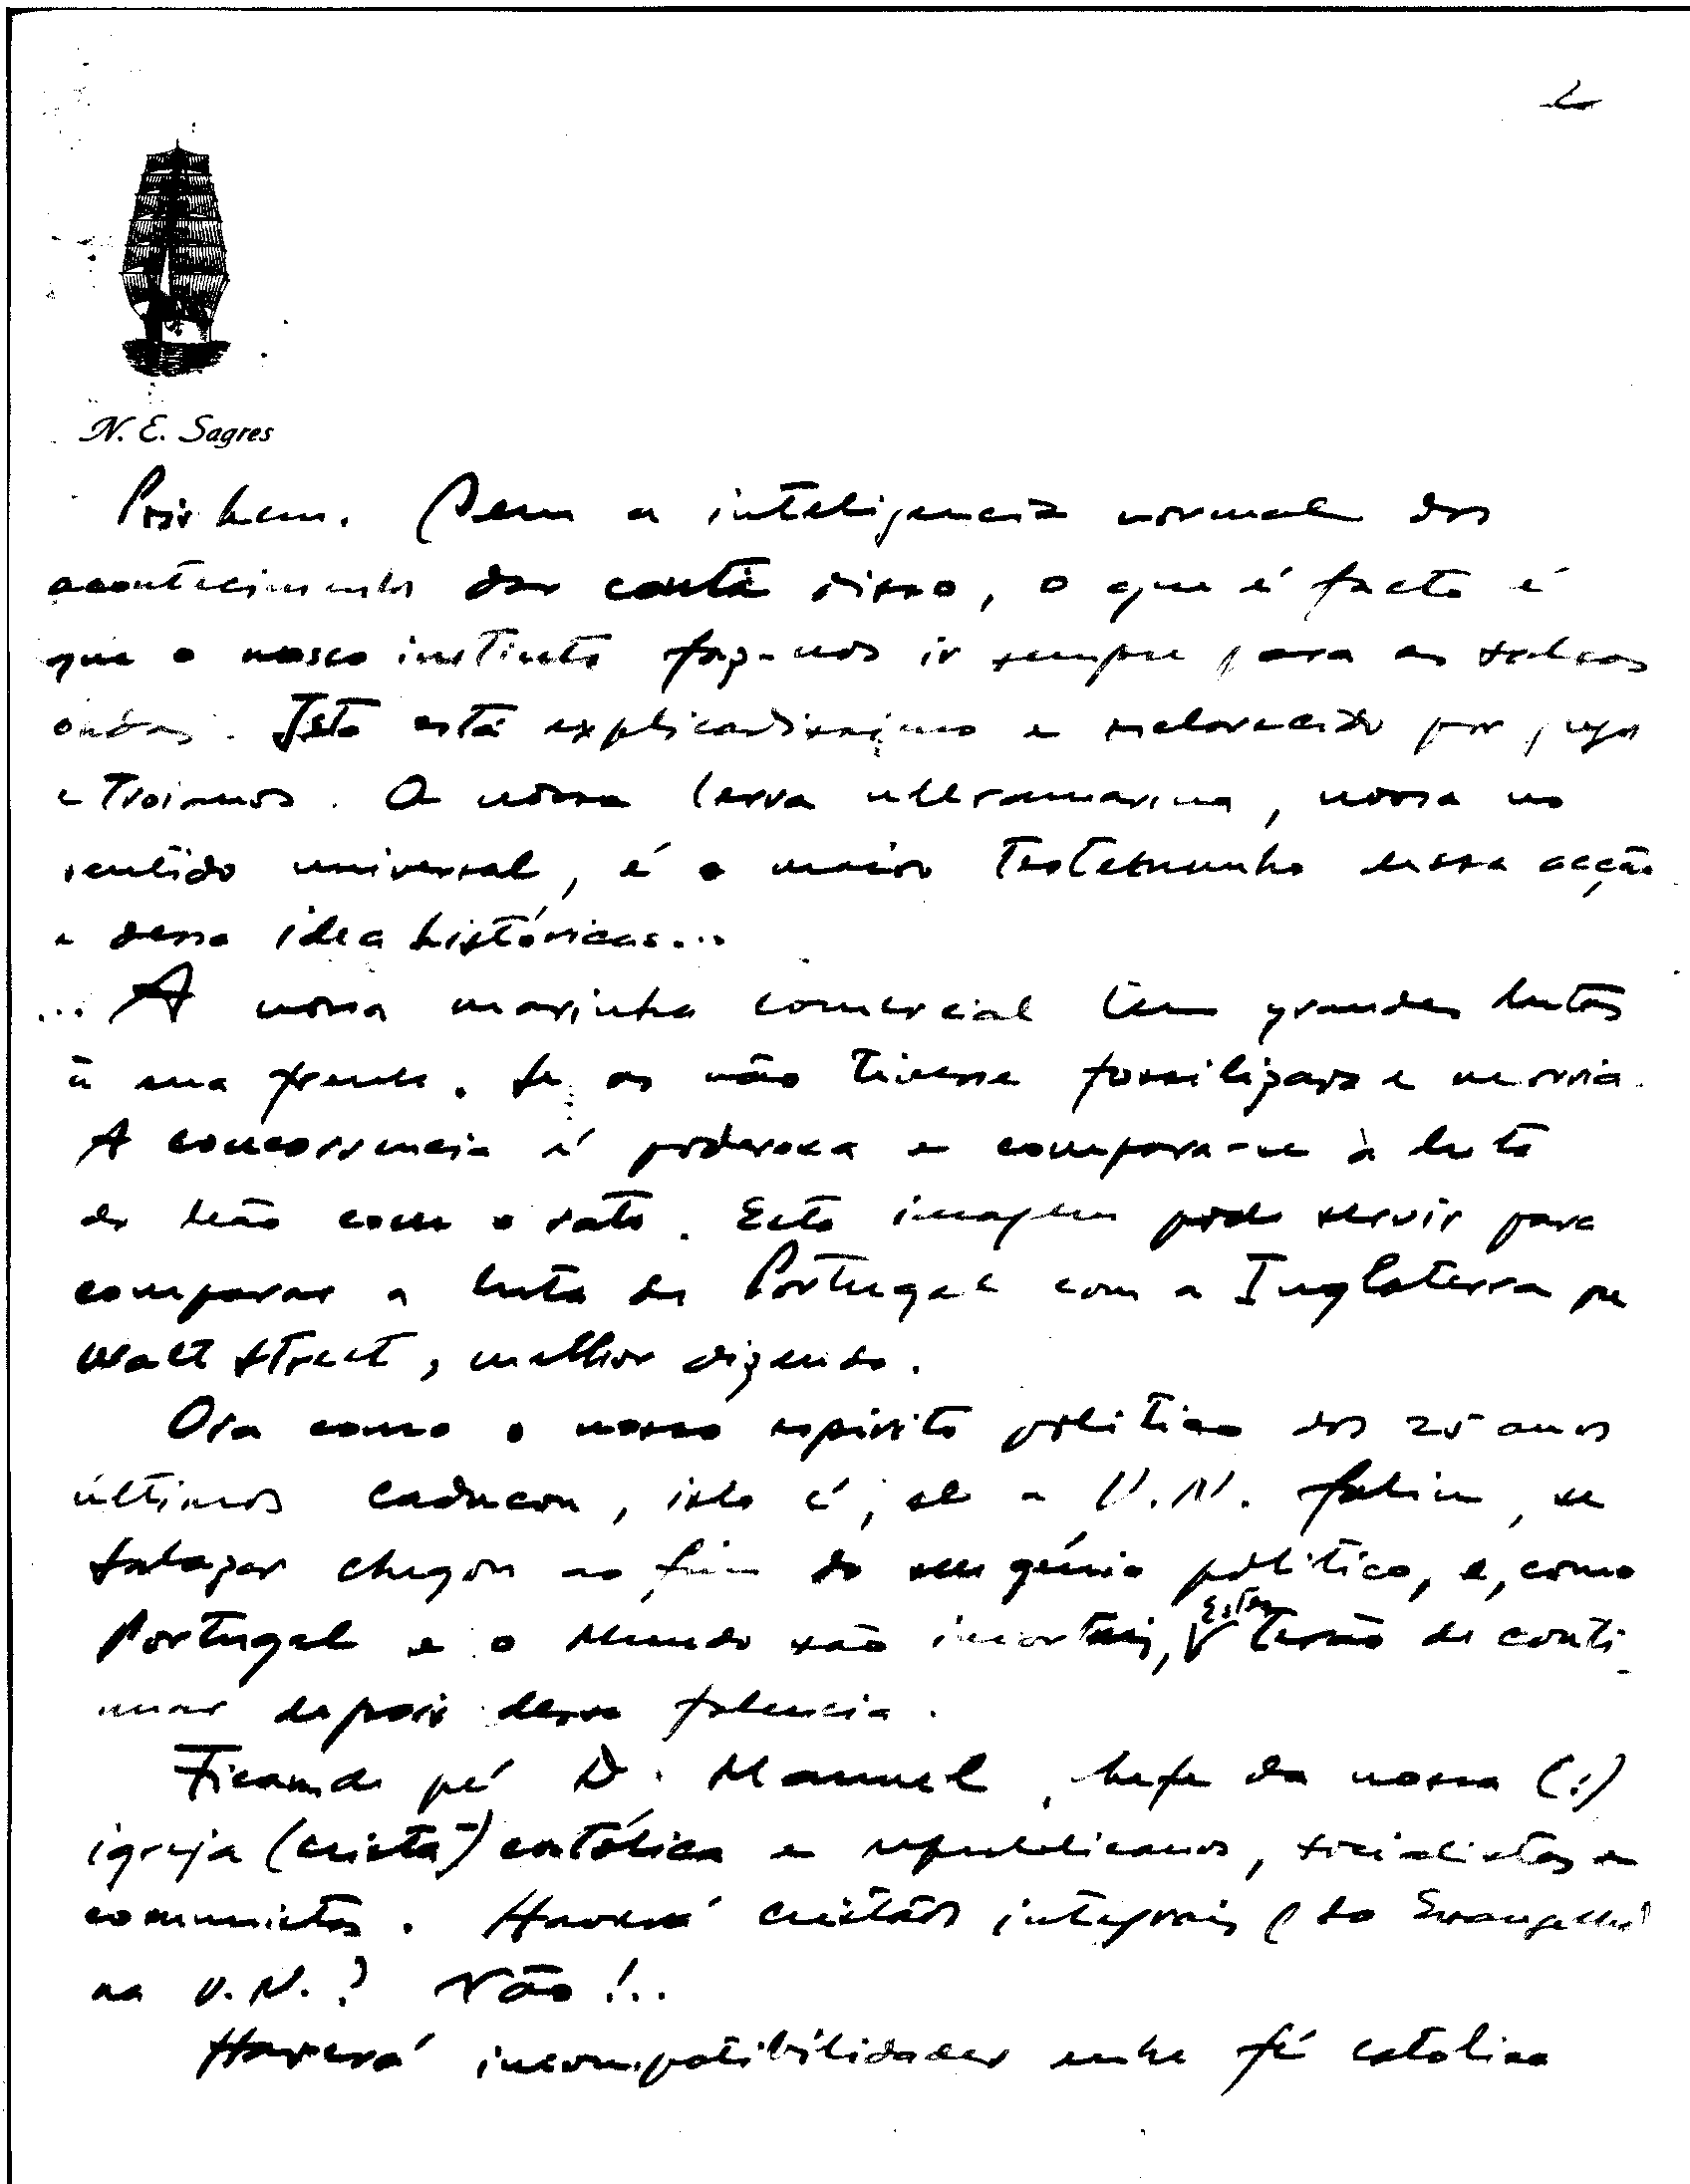 2
N. E. Sagres
Pois bem. Sem a inteligencia normal dos
acontecimentos dar conta disso, o que é facto é
que o nosco instinto faz-nos ir sempre para as salsas
ondas. Isto está explicadissimo e esclarecido por
e Troianos. A nossa terra ultramarina, nossa no
sentido universal, é o maior Testemunho dessa acção
e dessa idea históricas...
... A nossa marinha comercial tem grandes lutas
à sua frente. Se as não tivesse fossilizava e morria.
A concorrencia é poderosa e compara-se à luta
do leão com o rato. Esta imagem pode servir para
comparar a luta de Portugal com a Inglaterra ou
Walt Street, melhor dizendo.
Ora como o nosso espirito politico dos 25 anos
últimos caducou, isto é, se a U.N. faliu, se
Salazar chegou ao fim do seu génio politico, e, como
Portugal e o Mundo são imortais, Estes terão de conti
nuar depois dessa falencia.
Fica de pé D. Manuel, chefe da nossa (!)
igreja (cristã) católica e republicanos, socialistas e
comunistas. Haverá cristãos integrais (do Evangelho)
na U.N.? Não!..
Haverá incompatibilidades entre fé catolica